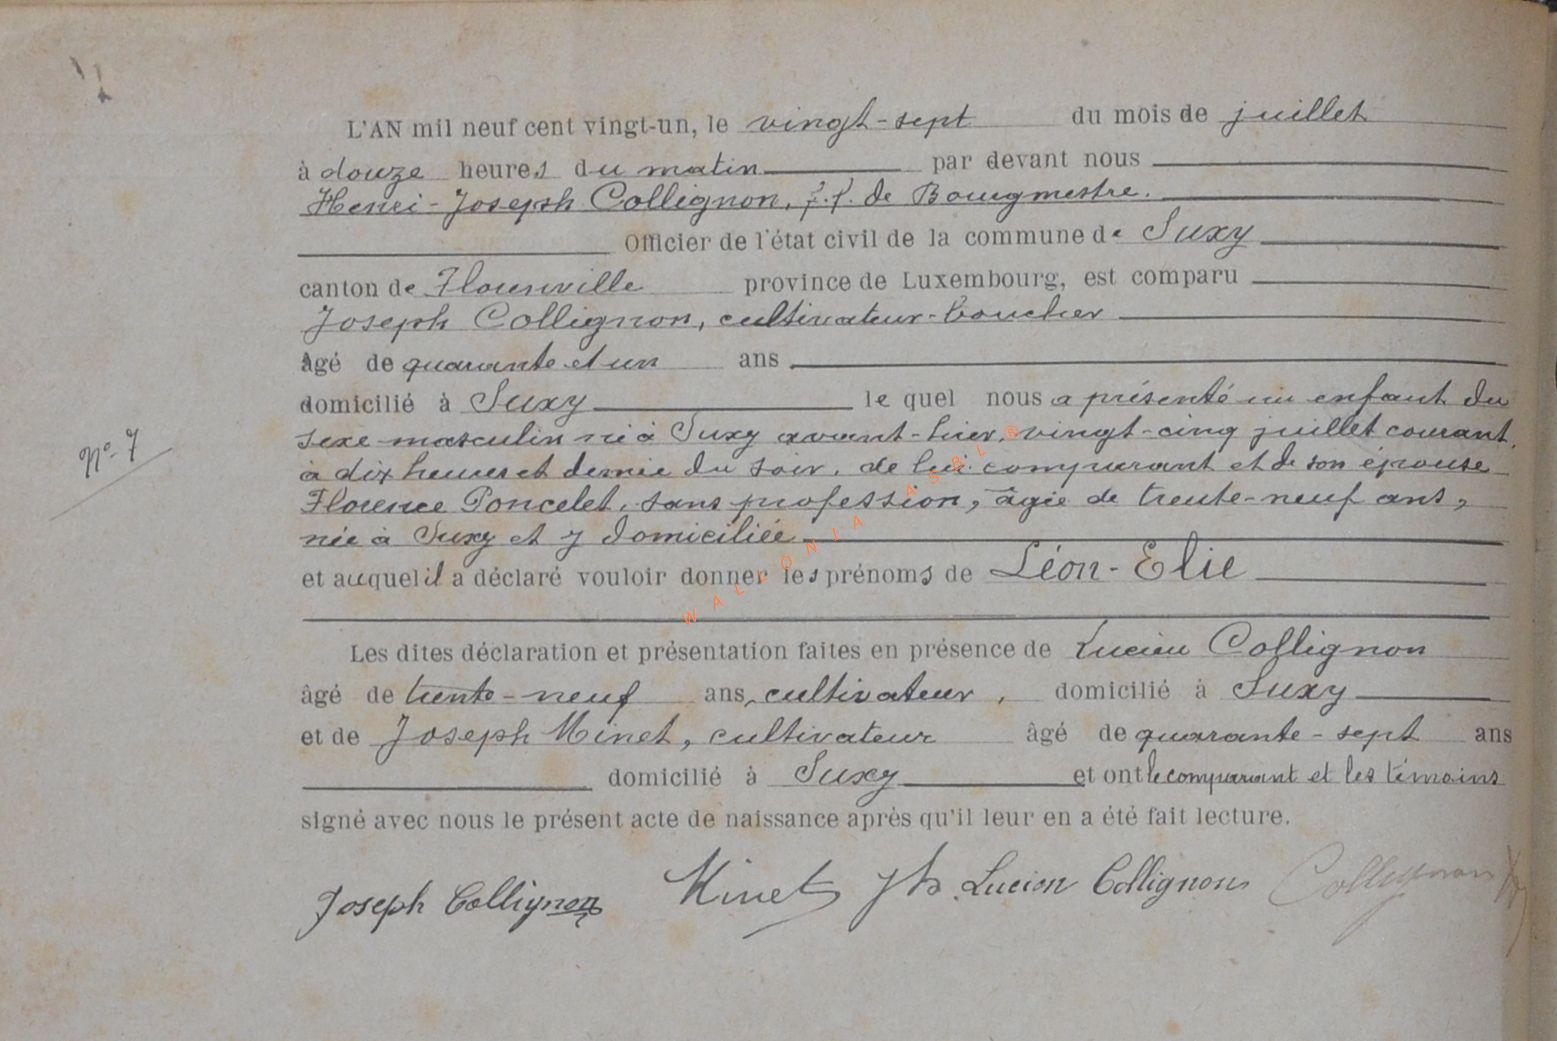 L'AN mil neuf cent vingt-un, le vingt-sept du mois de juillet
à douze heures du matin par devant nous
Henri-Joseph Collignon, f.f. de Bourgmestre.
Officier de l'état civil de la commune de Suxy
canton de Florenville province de Luxembourg, est comparu
Joseph Collignon, cultivateur-boucher
âgé de quarante et un ans
domicilié à Suxy le quel nous a présenté un enfant du
sexe masculin né à Suxy avant-hier, vingt-cinq juillet courant,
à dix heures et demie du soir, de lui comparant et de son épouse
Florence Poncelet, sans profession, âgée de trente-neuf ans,
née à Suxy et y domiciliée
N° 7
et auquel il a déclaré vouloir donner les prénoms de Léon-Elie
Les dites déclaration et présentation faites en présence de Lucien Collignon
âgé de trente-neuf ans, cultivateur, domicilié à Suxy
et de Joseph Minet, cultivateur âgé de quarante-sept ans
domicilié à Suxy et ont le comparant et les témoins
signé avec nous le présent acte de naissance après qu'il leur en a été fait lecture.
Joseph Collignon Minet Jh Lucien Collignon Collignon
WALLONIA ASBL ®